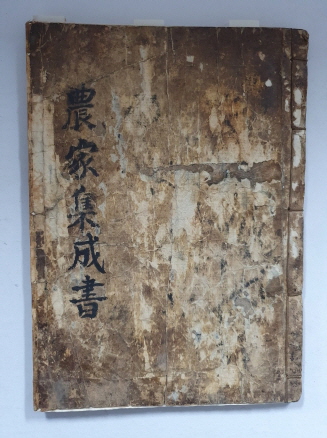 農家集成書